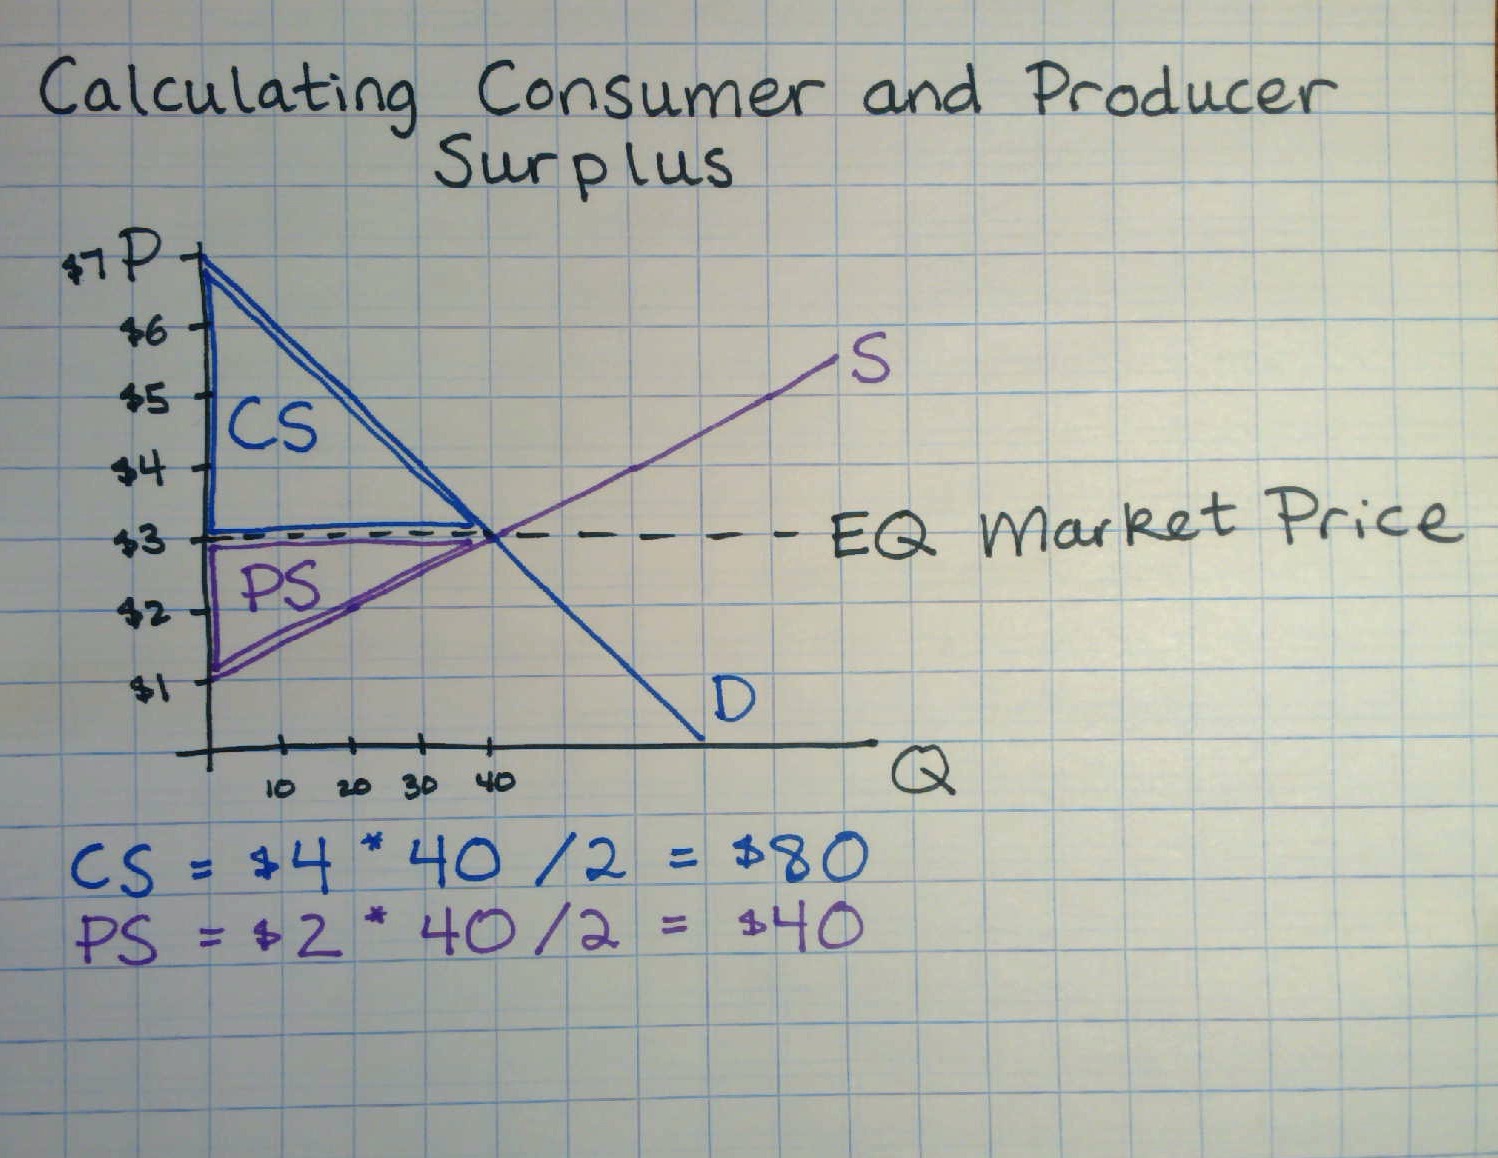 Calculating Consumer and Producer
Surplus
$7 P
$6
$5
CS
S
$4
$3
EQ Market Price
PS
$2
$1
D
10 20 30 40
Q
CS = $4 * 40 /2 = $80
PS = $2 * 40 /2 = $40